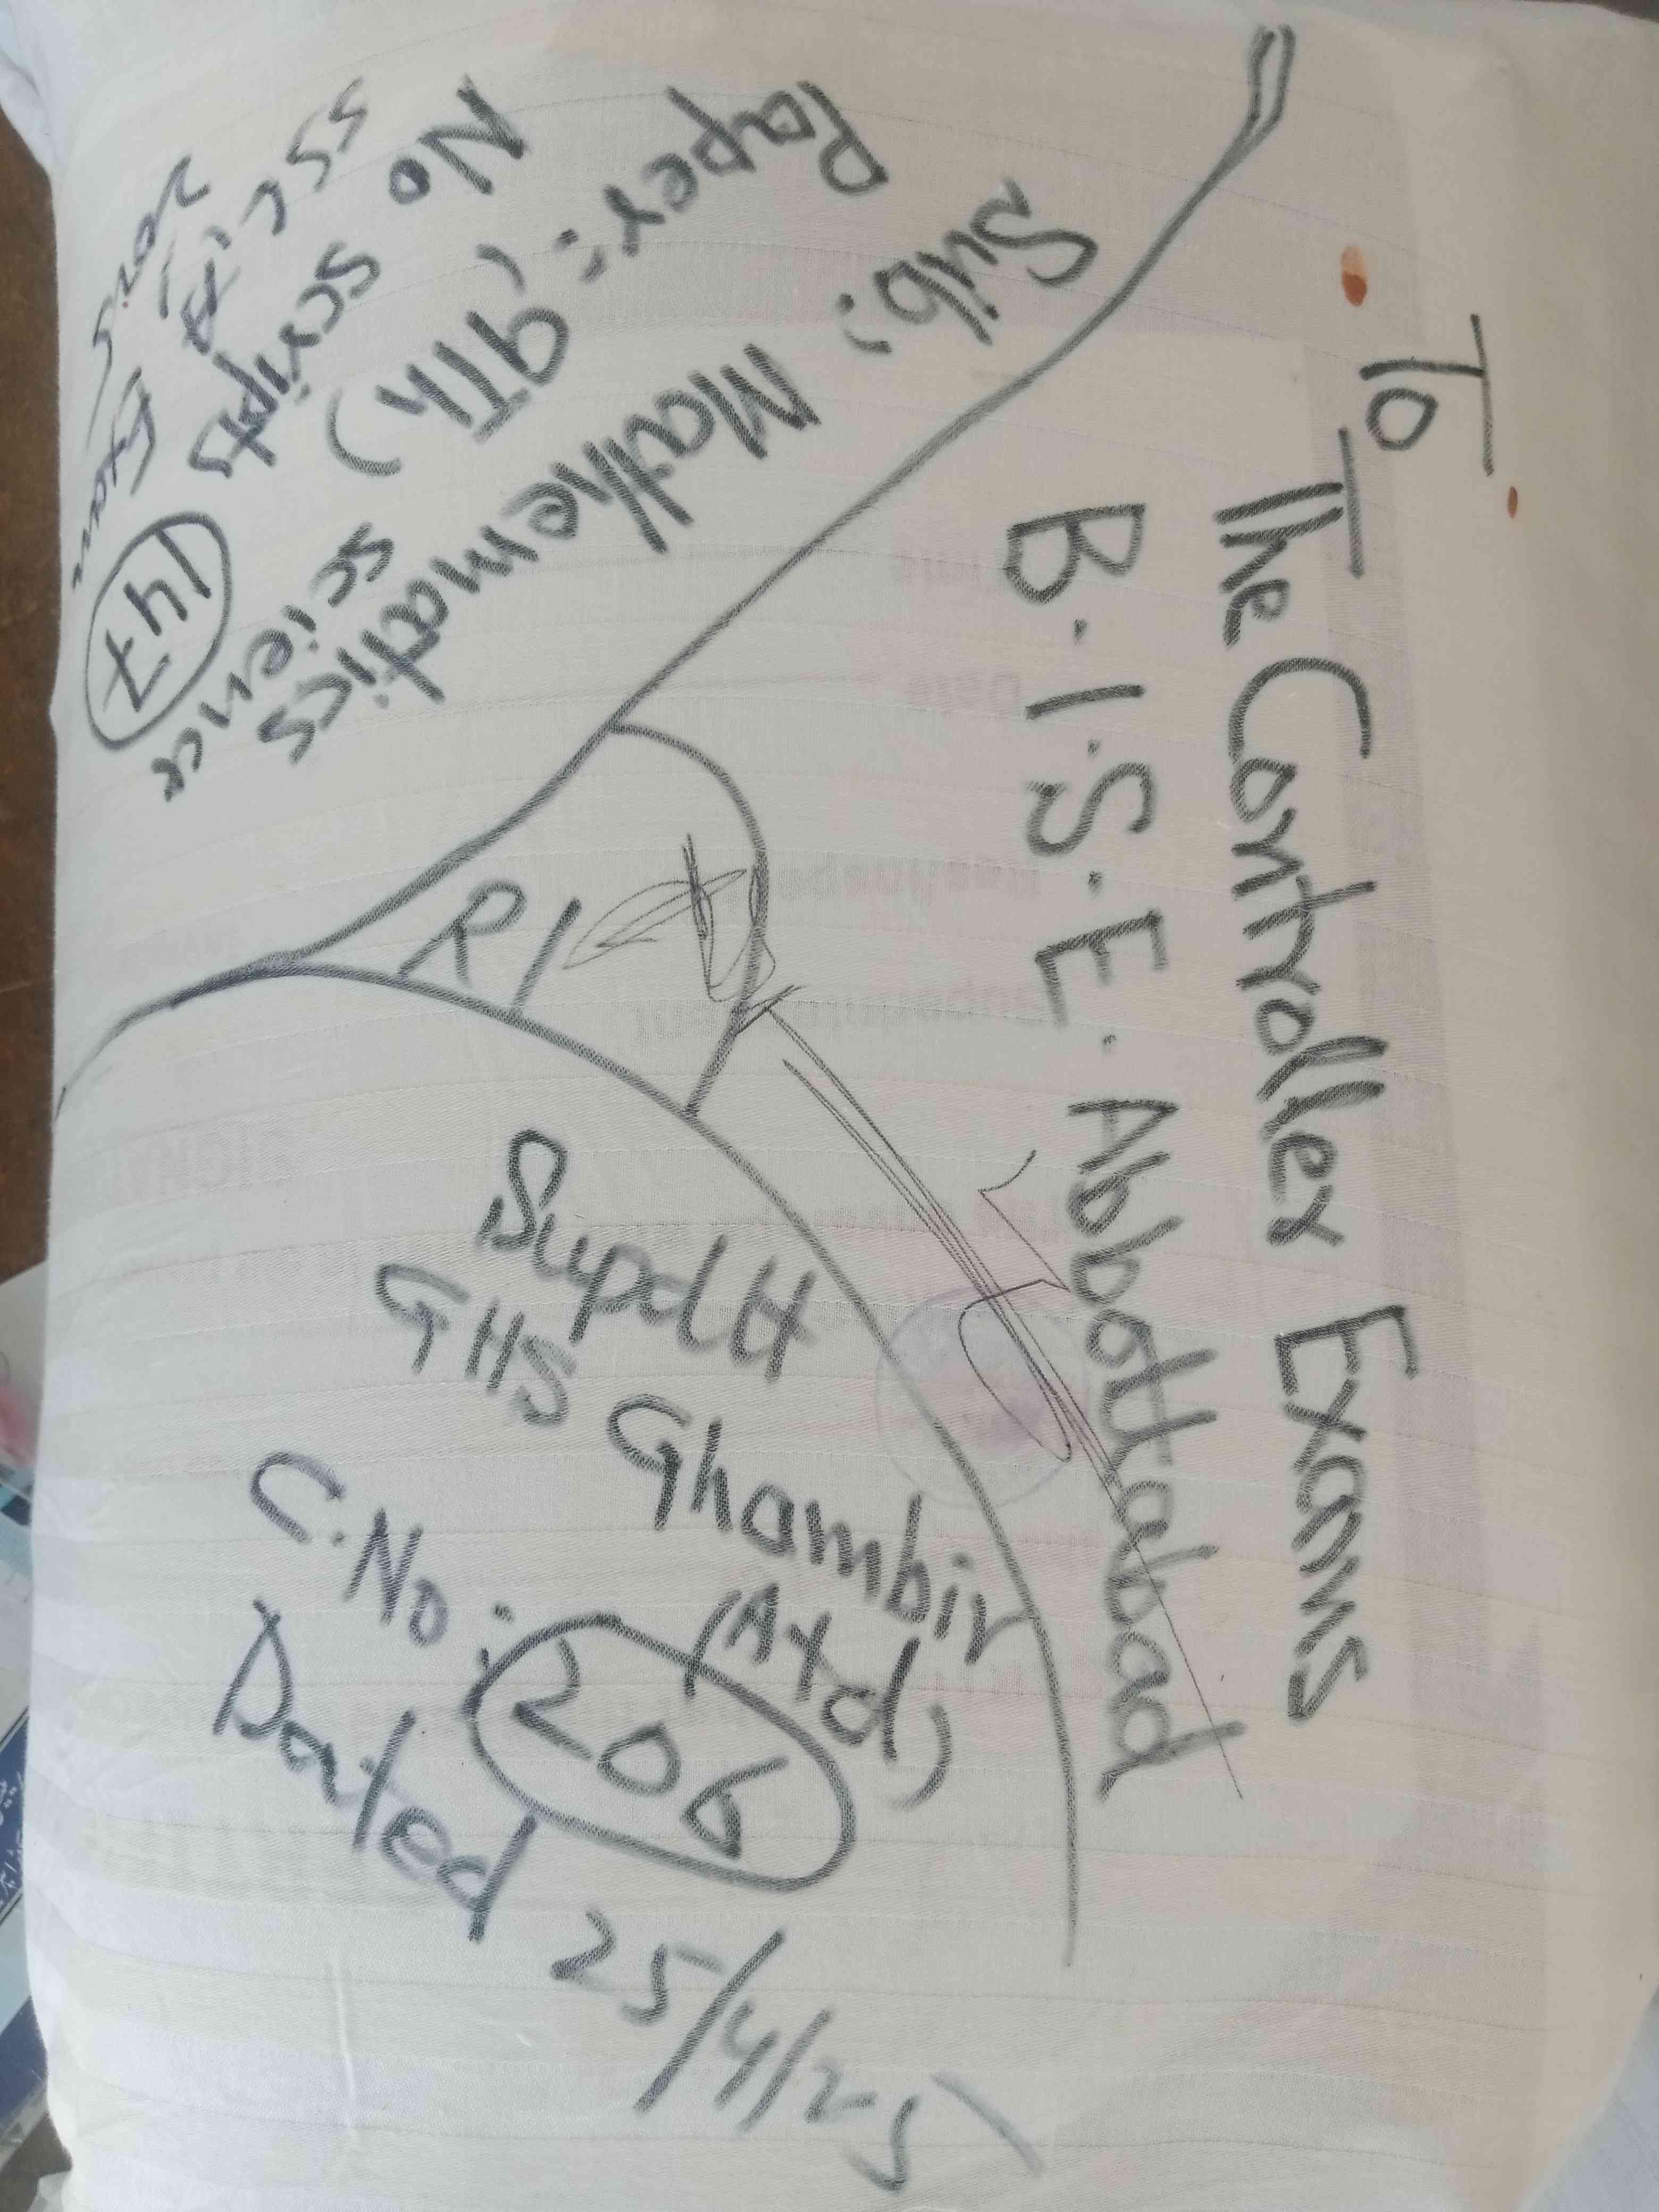 To
The Controller Exams
B.I.S.E. Abbottabad
Sub: Mathematics
Paper: (9Th) science
No scripts 147
SSC i.A Exam
2025
R/
Supdtt
GHS Ghambir
(Atd)
C.No: 206
Dated 25/4/25